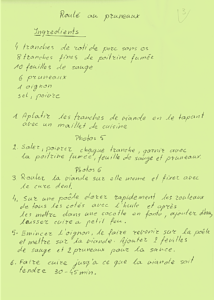 Roulé au pruneaux
Ingredients
4 tranches de roti de porc sans os
8 tranches fines de poitrine fumée
10 feuilles de sauge
6 pruneaux
1 oignon
sel, poivre
1 Aplatir les tranches de viande en le tapant
avec un maillet de cuisine
Photos 5
2 Salez, poivrez chaque tranche, garnir avec
la poitrine fumée, feuille de sauge et pruneaux
Photos 6
3 Roulez la viande sur elle meme et fixez avec
le cure dent.
4. Sur une poële dorez rapidement les rouleaux
de tous les cotés avec l'huile et après
les mettre dans une cocotte en fonte, ajoutez
laissez cuire a petit feu.
5- Émincez l'oignon, le faire revenir sur la poële
et mettre sur la viande. Ajoutez 2 feuilles
de sauge et 2 pruneaux pour la sauce.
6. Faire cuire jusqu'a ce que la viande soit
tendre 30-45 min.